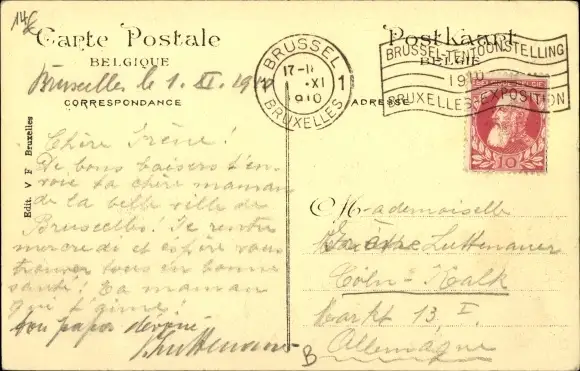 14
Carte Postale
BELGIQUE
Bruxelles le 1. XI. 1910
CORRESPONDANCE
Postkaart
BELGIE
ADRESSE
BRUSSEL
17-18
1 XI 1
1910
BRUXELLES
BRUSSEL-TENTOONSTELLING
1910
BRUXELLES-EXPOSITION
10
Edit. V F Bruxelles
Chère Irène!
De bons baisers t'en-
voie ta chère maman
de la belle ville de
Bruxelles! Je rentre
mercredi et espère vous
trouver tous en bonne
santé! Ta maman
qui t'aime!
ton papa dévoué
Luttenauer
Mademoiselle
Irène Luttenauer
Cöln-Kalk
Markt 13, I.
Allemagne
B